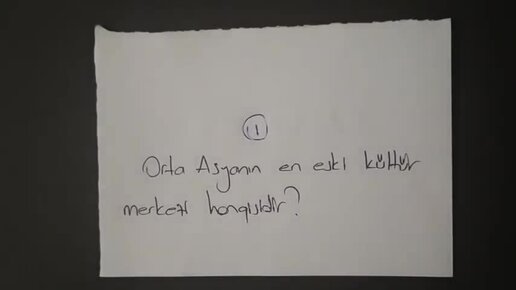 11
Orta Asyanın en eski kültür
merkezi hangisidir?